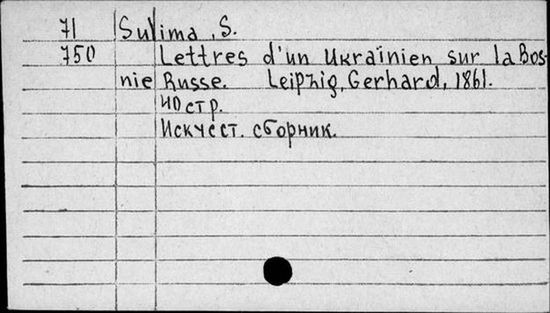 71 Sulima, S.
750 Lettres d'un Ukraïnien sur la Bos-
nie Russe. Leipzig, Gerhard, 1861.
40 стр.
Искчест. сборник.